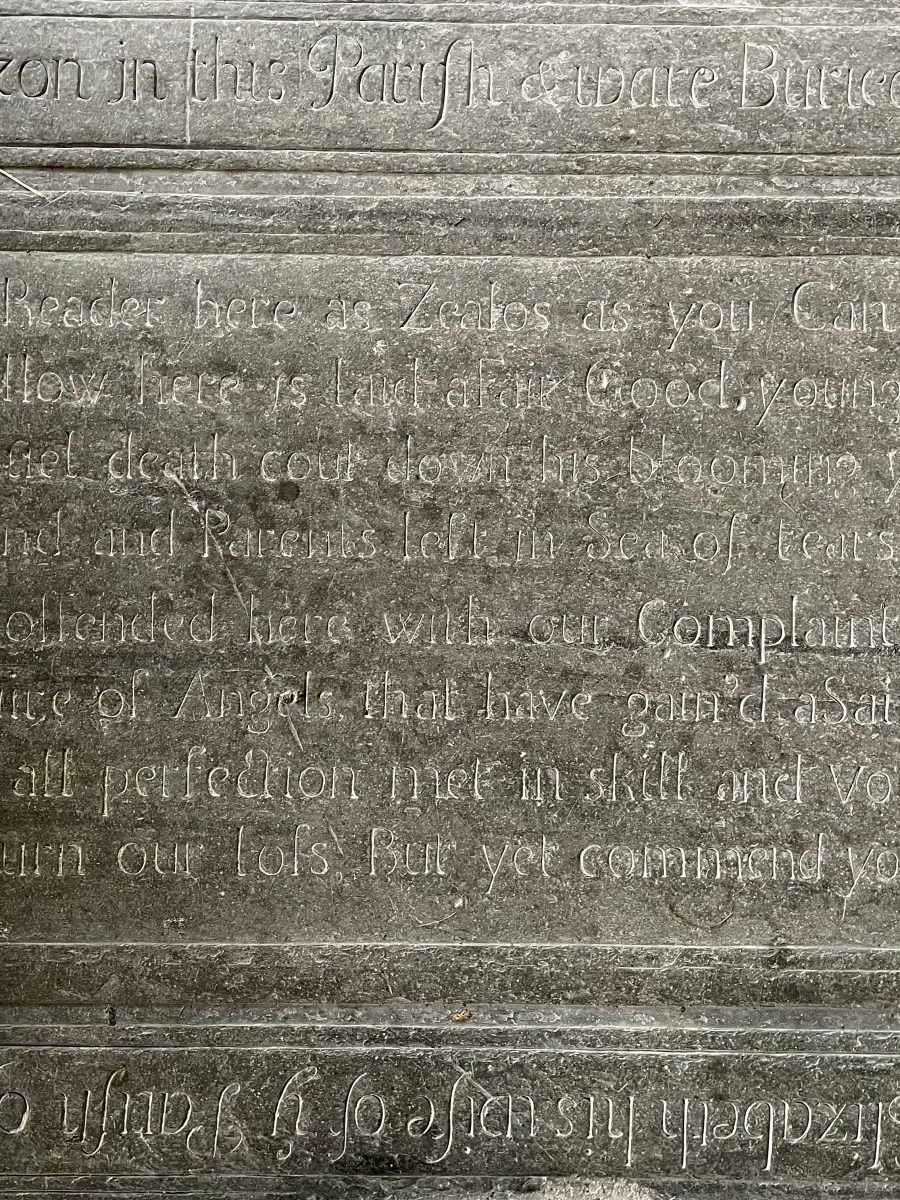 zon in this Pariſh & ware Burie
Reader here as Zealos as you Can
llow here is laid a Fair Good, young
uel death cout down his blooming y
nd and Parents left in Sea of tears
offended here with our Complaint
uire of Angels, that have gain'd a Sai
all perfection met in skill and vo
urn our loſs, But yet commend yo
lizabeth his wife of y Pariſh o